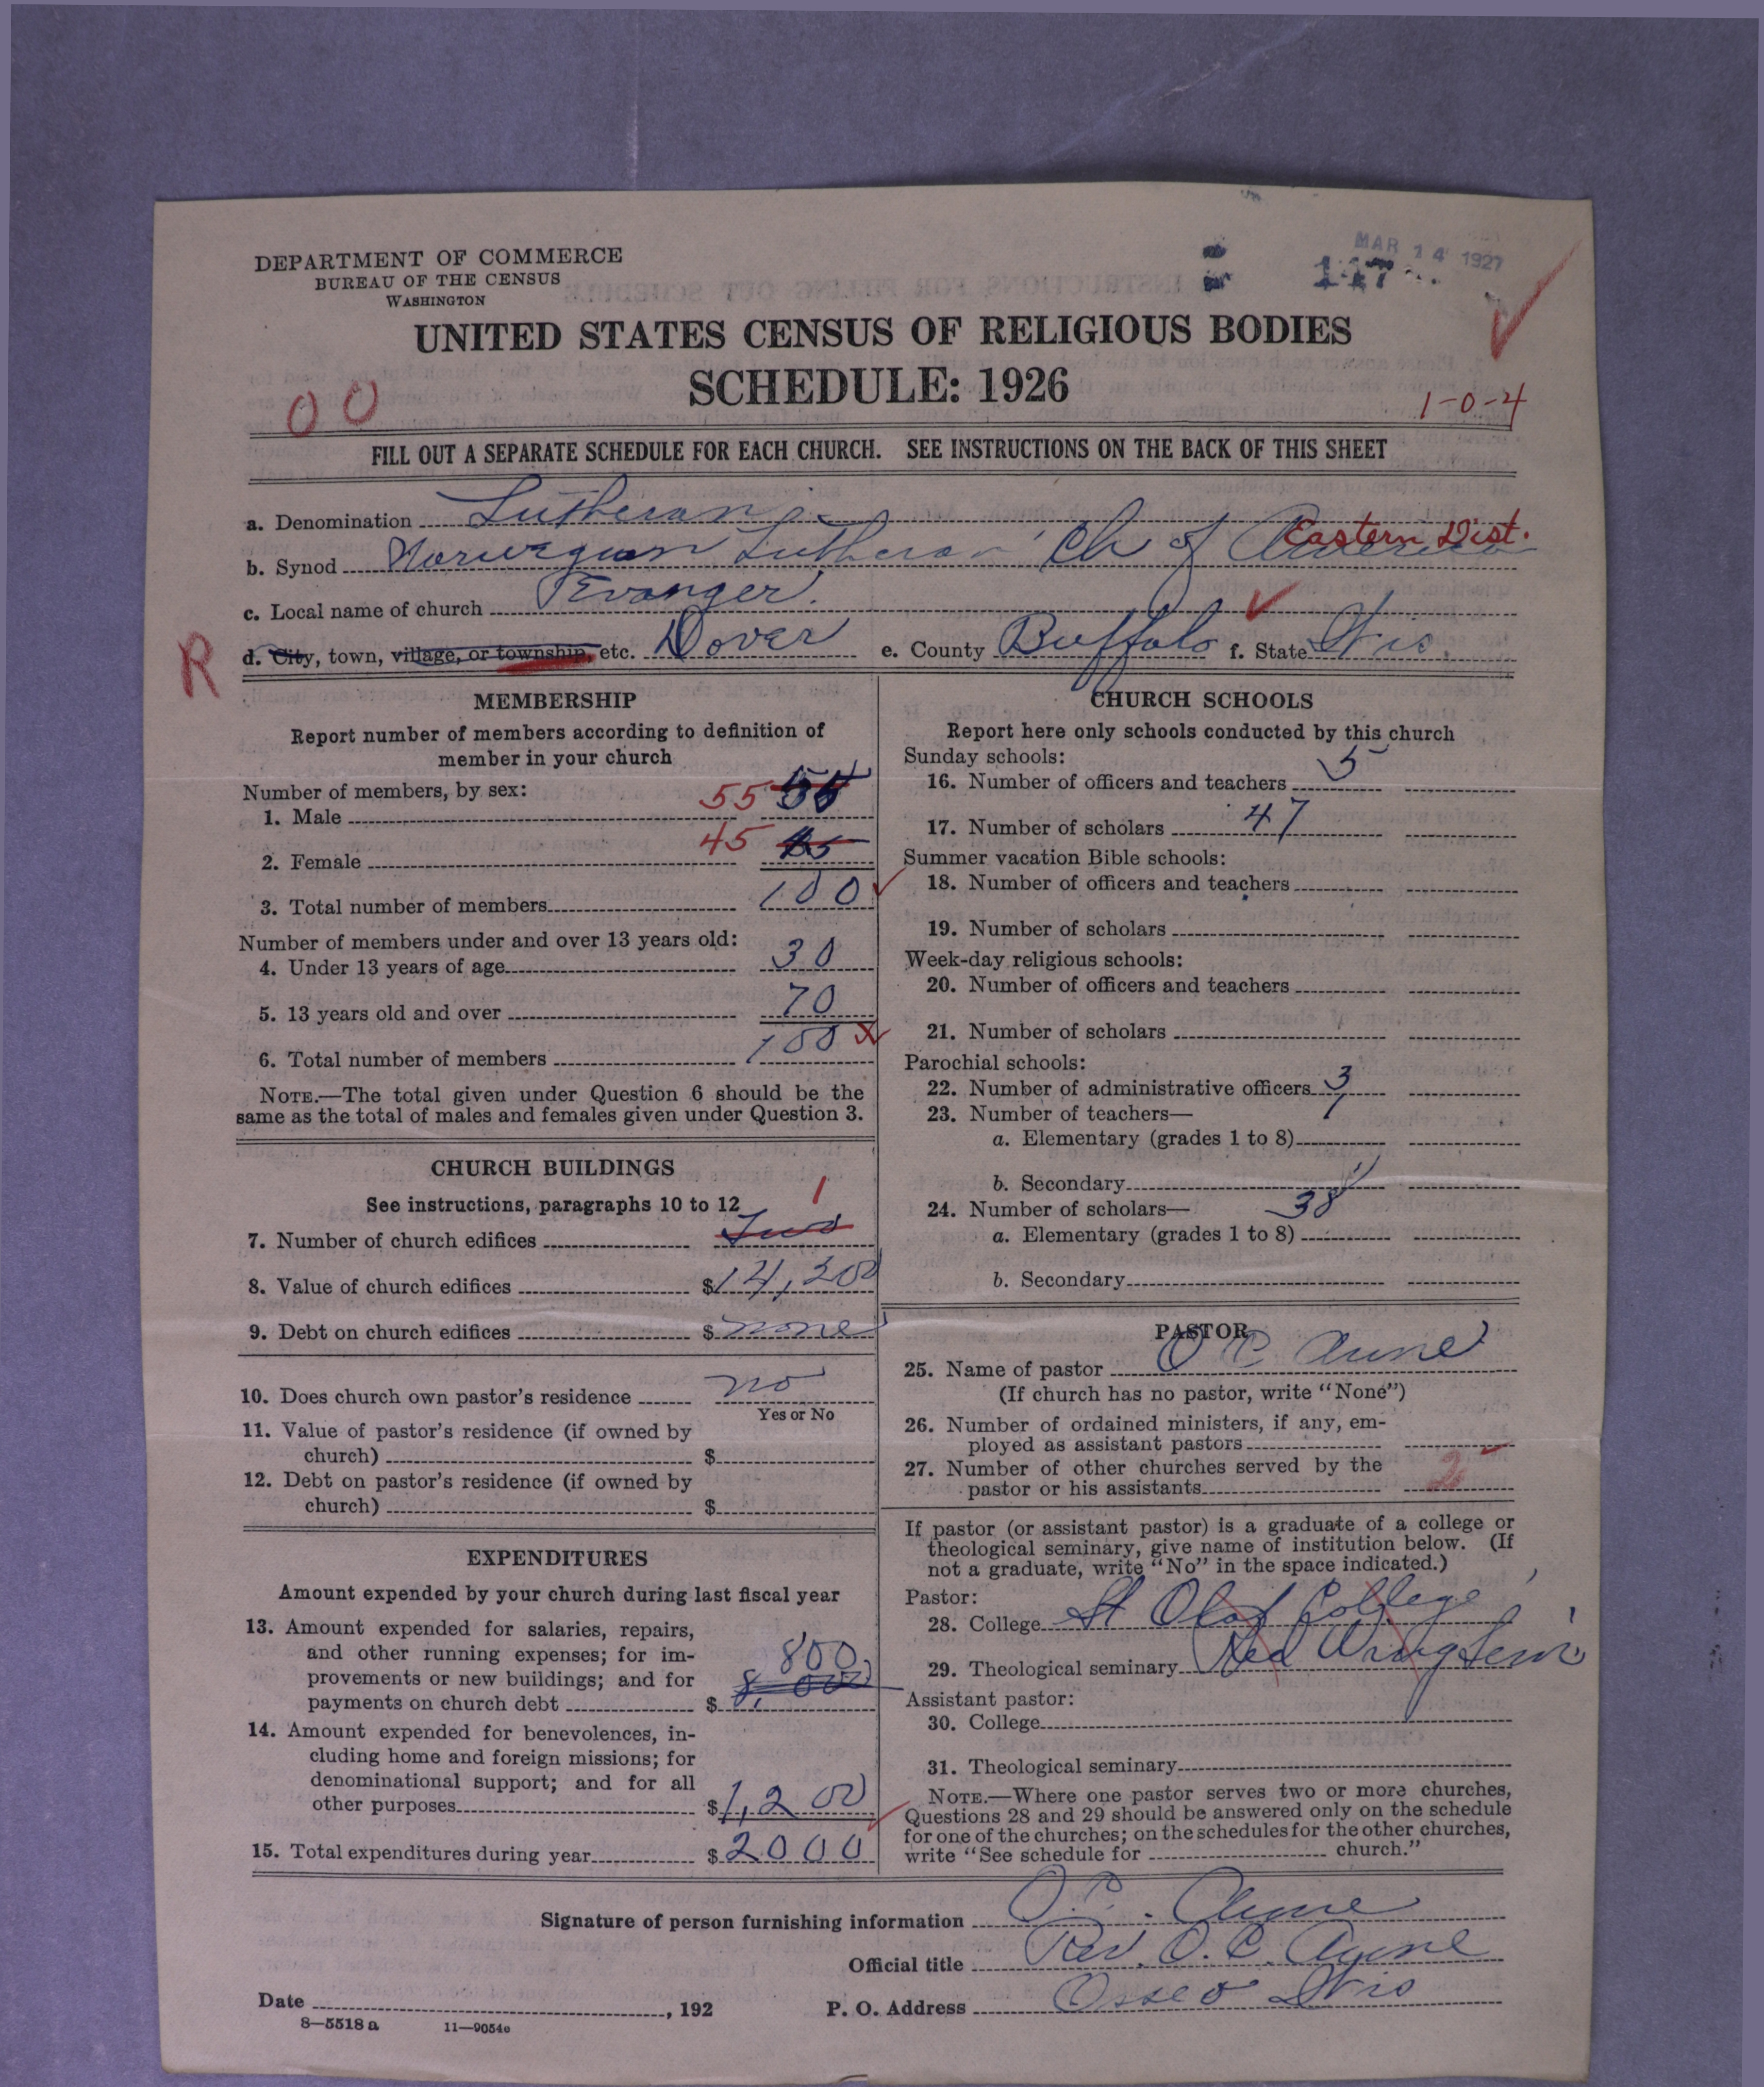 MAR 14 1927
DEPARTMENT OF COMMERCE
BUREAU OF THE CENSUS
WASHINGTON
117
UNITED STATES CENSUS OF RELIGIOUS BODIES
SCHEDULE: 1926
00
1-0-4
FILL OUT A SEPARATE SCHEDULE FOR EACH CHURCH. SEE INSTRUCTIONS ON THE BACK OF THIS SHEET
a. Denomination Lutheran
Eastern Dist.
b. Synod Norwegian Lutheran Ch of America
c. Local name of church Evanger.
R
d. City, town, village, or township, etc. Dover e. County Buffalo f. State Wis.
MEMBERSHIP
Report number of members according to definition of
member in your church
Number of members, by sex:
1. Male 55
2. Female 45
3. Total number of members 100
Number of members under and over 13 years old:
4. Under 13 years of age 30
5. 13 years old and over 70
6. Total number of members 100
NOTE.—The total given under Question 6 should be the
same as the total of males and females given under Question 3.
CHURCH BUILDINGS
See instructions, paragraphs 10 to 12
1
7. Number of church edifices Two
8. Value of church edifices $14,200
9. Debt on church edifices $ none
10. Does church own pastor's residence no
Yes or No
11. Value of pastor's residence (if owned by
church) $
12. Debt on pastor's residence (if owned by
church) $
EXPENDITURES
Amount expended by your church during last fiscal year
13. Amount expended for salaries, repairs,
and other running expenses; for im-
provements or new buildings; and for 800
payments on church debt $ 8,000
14. Amount expended for benevolences, in-
cluding home and foreign missions; for
denominational support; and for all
other purposes $1,200
15. Total expenditures during year $2000
CHURCH SCHOOLS
Report here only schools conducted by this church
Sunday schools:
16. Number of officers and teachers 5
17. Number of scholars 47
Summer vacation Bible schools:
18. Number of officers and teachers
19. Number of scholars
Week-day religious schools:
20. Number of officers and teachers
21. Number of scholars
Parochial schools:
22. Number of administrative officers 3
23. Number of teachers—
a. Elementary (grades 1 to 8)
b. Secondary
24. Number of scholars— 38
a. Elementary (grades 1 to 8)
b. Secondary
PASTOR
25. Name of pastor O C Aune
(If church has no pastor, write "None")
26. Number of ordained ministers, if any, em-
ployed as assistant pastors
27. Number of other churches served by the
pastor or his assistants 2
If pastor (or assistant pastor) is a graduate of a college or
theological seminary, give name of institution below. (If
not a graduate, write "No" in the space indicated.)
Pastor:
28. College St Olaf College
29. Theological seminary Red Wing Sem
Assistant pastor:
30. College
31. Theological seminary
NOTE.—Where one pastor serves two or more churches,
Questions 28 and 29 should be answered only on the schedule
for one of the churches; on the schedules for the other churches,
write "See schedule for church."
Signature of person furnishing information O. C. Aune
Official title Rev. O. C. Aune
Date , 192 P. O. Address Osseo Wis
8—5518 a 11—9054c